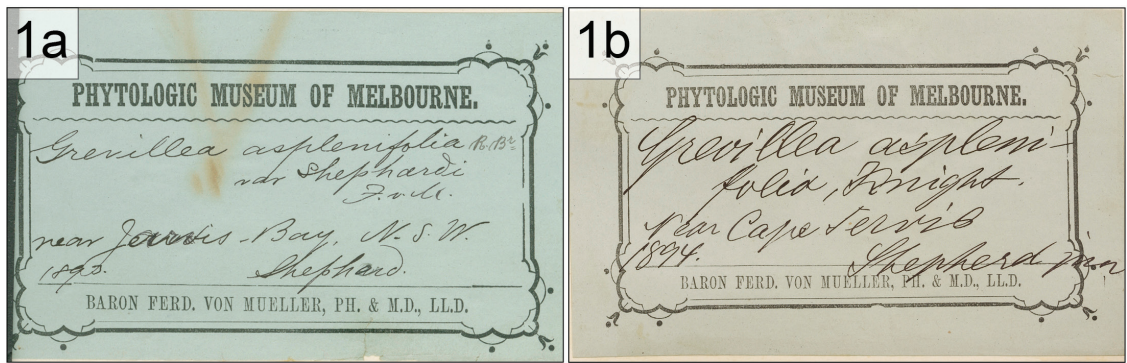 1a
PHYTOLOGIC MUSEUM OF MELBOURNE.
Grevillea asplenifolia R. Br.
var Shephardi
F.v.M.
near Jervis Bay, N. S. W.
Shephard.
BARON FERD. VON MUELLER, PH. & M.D., LL.D.
1b
PHYTOLOGIC MUSEUM OF MELBOURNE.
Grevillea aspleni-
folia, Knight.
Near Cape Jervis
1894.
Shepherd jun
BARON FERD. VON MUELLER, PH. & M.D., LL.D.